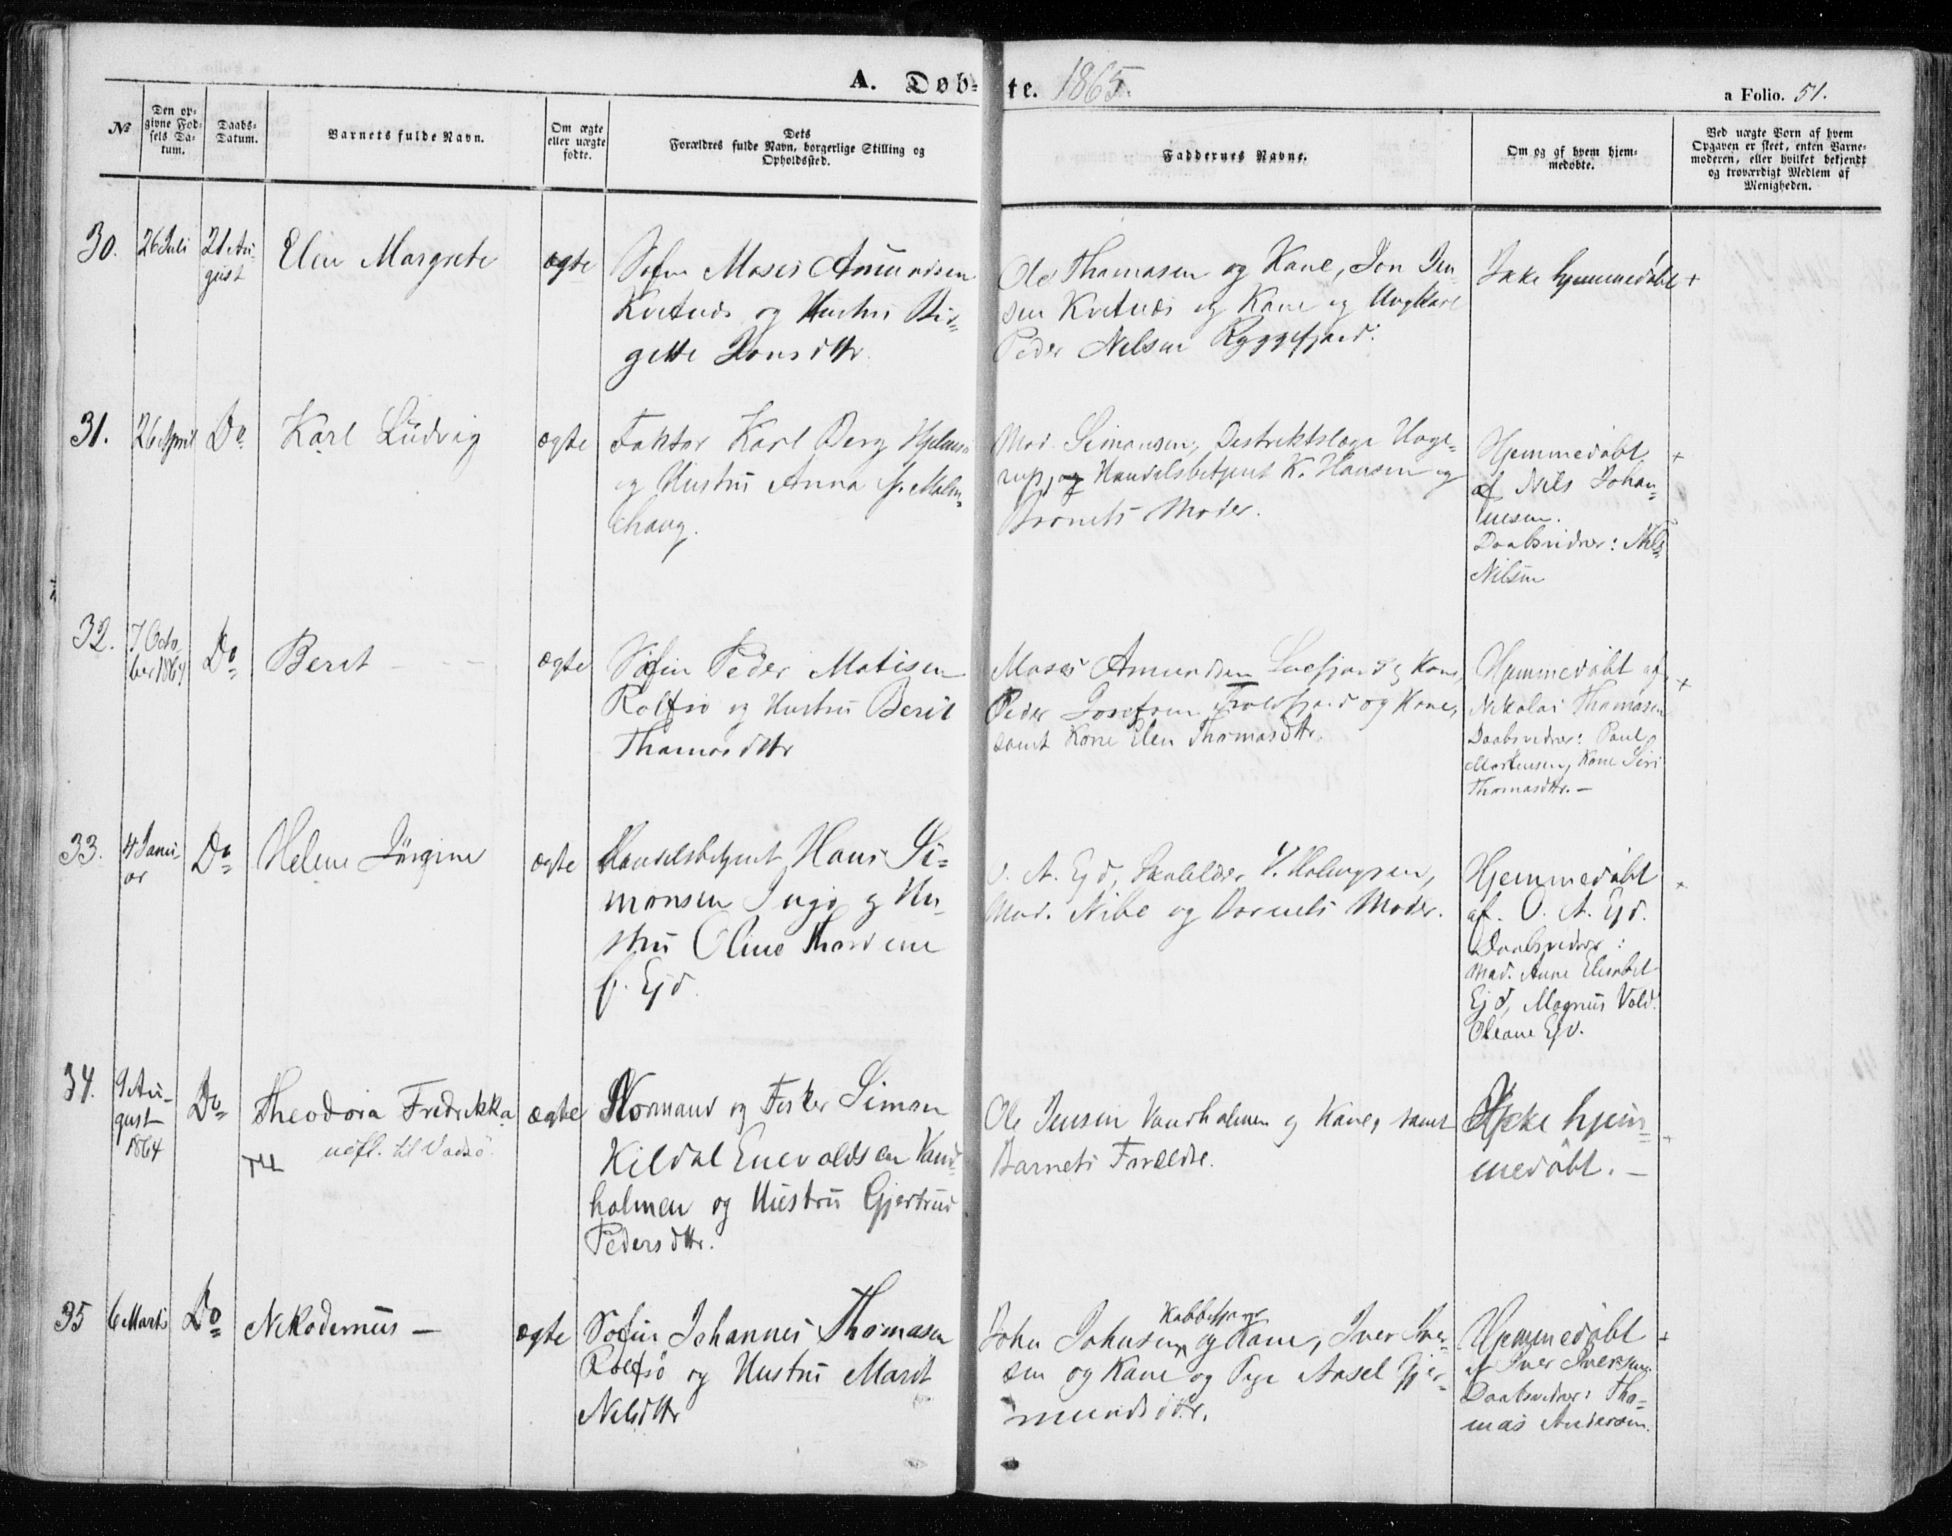 A. Døbte. 1865.
a Folio. 51.
No
Den opgivne Fødsels Datum.
Daabs-Datum.
Barnets fulde Navn.
Om ægte eller uægte fødte.
Dets Forældres fulde Navn, borgerlige Stilling og Opholdssted.
Faddernes Navne.
Om og af hvem hjemmedøbte.
Ved uægte Børn af hvem Opgaven er skeet, enten Barnemoderen, eller hvilket bekjendt og troværdigt Medlem af Menigheden.
30.
26 Juli
21 Au-
gust
Elen Margrete
ægte
Søfin Moses Amundsen
Kvitnæs og Hustru Bir-
gitte Jonsdttr.
Ole Thomasen og Kone, Jon Jen-
sen Kvitnæs og Kone og Ungkarl
Peder Nilsen Ryggefjord.
Ikke hjemmedøbt +
31.
26 April
Do
Karl Ludvig
ægte
Faktor Karl Berg Hjelmsø
og Hustru Anna f. Malm-
chaug.
Mad. Simonsen, Destriktslæge Hage-
rup, og Handelsbetjent K. Hansen og
Barnets Moder.
Hjemmedøbt +
af Nils Johan-
nesen.
Daabsvidner: Nils
Nilsen
32.
7 Octo
ber 1864
Do
Berit
ægte
Søfin Peder Matisen
Rolfsø og Hustru Berit
Thomasdttr
Moses Amundsen Snefjord og Kone,
Peder Josefsen Troldfjord og Kone,
samt Kone Elen Thomasdttr.
Hjemmedøbt af +
Nikolai Thomasen
Daabsvidner: Paul
Mortensen, Kone Siri
Thomasdttr. —
33.
4 Janu-
ar
Do
Helene Jørgine
ægte
Handelsbetjent Hans Si-
monsen Ingø og Hu-
stru Oline
f. Ejd.
O. A. Ejd, V. Holmgren,
Mad. Nibe og Barnets Moder.
Hjemmedøbt +
af. O. A. Ejd.
Daabsvidner:
Mad. Anne Elisabet
Ejd, Magnus Vold.
Oleane Ejd.
34.
9 Au-
gust
1864
Do
Theodora Fredrikka
udfl. til Vadsø.
ægte
Normand og Fisker Simon
Kildal Enevoldsen Vand-
holmen og Hustru Gjertrud
Pedersdttr.
Ole Jensen Vandholmen og Kone, samt
Barnets Forældre.
Ikke hjem- +
medøbt. —
35
6 Marts
Do
Nekodemus —
ægte
Søfin Johannes Thomasen
Rolfsø og Hustru Marit
Nilsdttr
John Johnsen og Kone, Iver Iver-
sen og Kone og Pige Aasel Gjer-
mundsdttr.
Hjemmedøbt +
af Iver Iversen.
Daabsvidner: Tho-
mas Andersen.